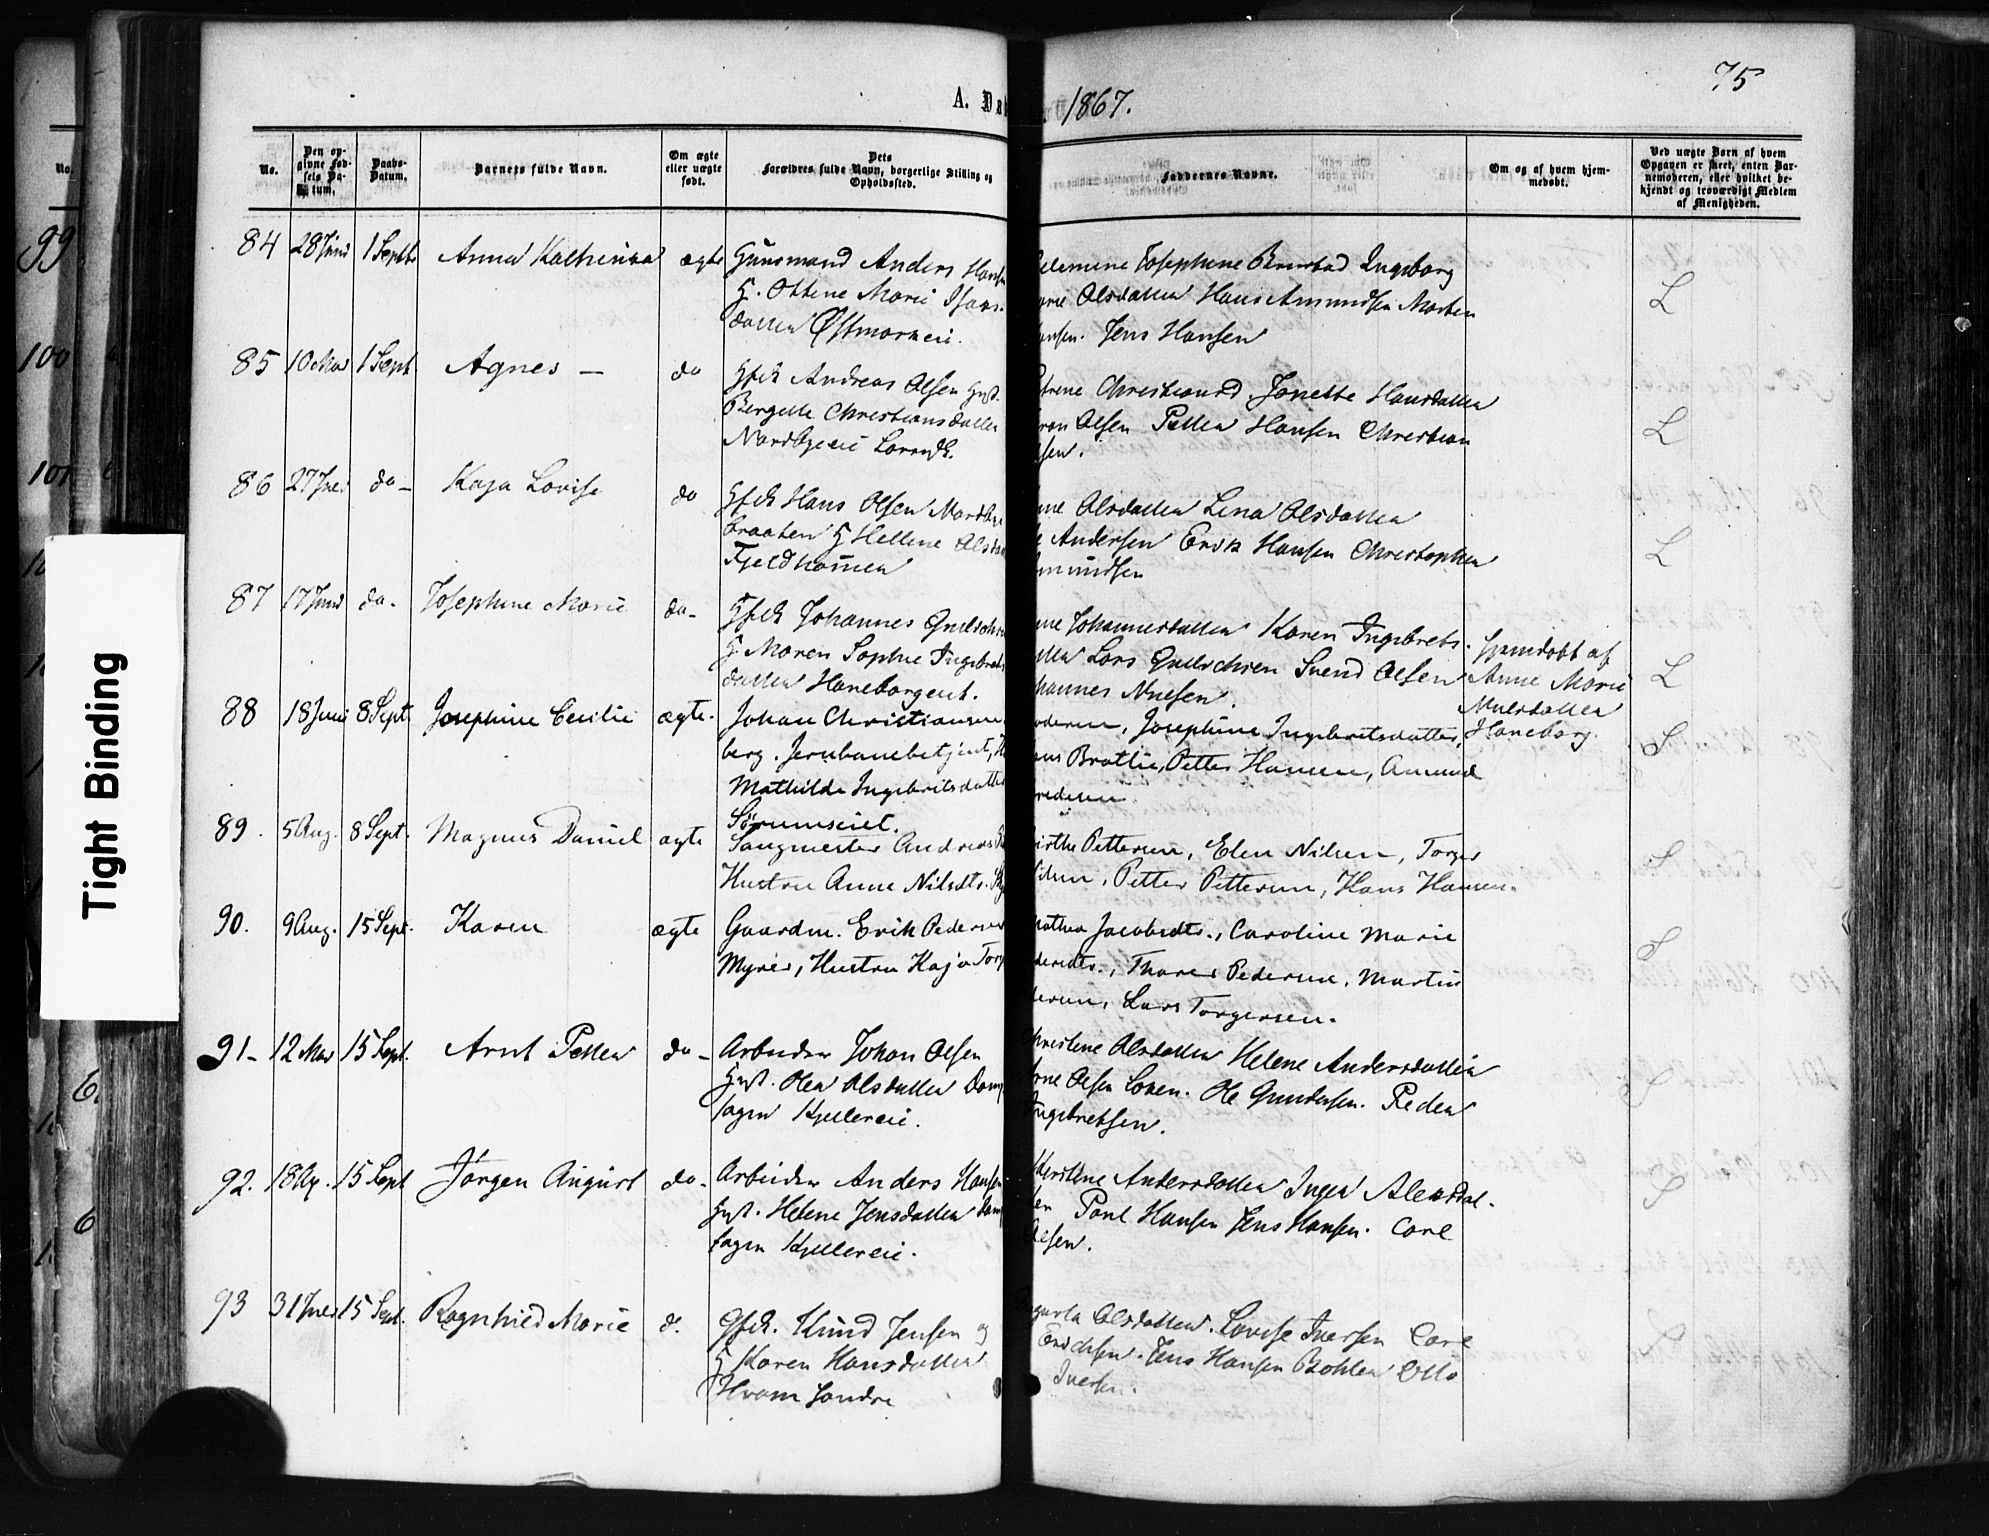 75
A. Dø
1867.
No.
Den op-
givne Fød-
sels Da-
tum.
Daabs-
Datum.
Barnets fulde Navn.
Om ægte
eller uægte
født.
Dets
Forældres fulde Navn, borgerlige Stilling og
Opholdssted.
Faddernes Navne.
Om og af hvem hjem-
medøbt.
Ved uægte Børn af hvem
Opgaven er skeet, enten Bar-
nemoderen, eller hvilket be-
kjendt og troværdigt Medlem
af Menigheden.
84 28 Juni 1 Septb. Anna Kathrina ægte Huusmand Anders Hansen
H. Oktine Marie Isaks-
datter Østmorkeie.
Josephine Ingeborg
Olsdatter Hans Amundsen Morten
ansen. Jens Hansen
L
85 10 Mai 1 Sept Agnes — do Gfek Andreas Olsen Hust.
Bergitte Christiansdatter
Nordbyeie
Christiansd. Jonette Hansdatter
Olsen Petter Hansen Christian
lsen.
L
86 27 do — Kaja Lovise do Gfek Hans Olsen Nordby
braaten H Hellene Olsda
Fjeldhammer
Olsdatter Lena Olsdatter
Andersen Erik Hansen Christopher
mundsen
L
87 17 Juni do. Josephine Marie do— Gfek Johannes Gulichs
H. Maren Sophie Ingebrets
datter Haneborgeiet.
ne Johannesdatter Karen Ingebrets.
tter Lars Gulichsen Svend Olsen
hannes Nielsen.
Hjemdøbt af
Anne Marie
Nilsdatter
Haneborg.
L
88 18 Juni 8 Sept. Josephine Cecilie ægte. Johan Christiansen
berg. Jernbanebetjent, H
Mathilde Ingebritsdatter
Sörumseiet.
oderen, Josephine Ingebritsdatter,
ans Brottie, Petter Hansen, Amund
redsen.
S
89. 5 Aug. 8 Sept. Magnus Daniel ægte Sangmester Andreas
Hustru Anne Nilsdtr.
irthe Pettersen, Elen Nilsen, Torger
ilsen, Petter Pettersen, Hans Hansen.
S
90. 9 Aug. 15 Sept. Karen ægte Gaardm. Erik Pedersen
Myrer, Hustru Kaja Torg
Mathea Jacobsdtr., Caroline Marie
dersdtr., Thorer Pedersen, Martin
dersen, Lars Torgersen.
S
91— 12 Mai 15 Sept. Arnt Petter do— Arbeider Johan Olsen
Hust. Olea Olsdatter Damp
sagen Kjellereie.
Christine Olsdatter Helene Andersdatter
Arne Olsen Ole Gundersen. Peder
Ingebretsen.
S
92. 18 Ap. 15 Sept Jörgen August do. Arbeider Anders Hansen
Hust. Helene Jensdatter Damp
sagen Kjellereie.
Andersdatter Inger Alexdat-
ter Paul Hansen Jens Hansen. Carl
Olsen.
S
93 31 15 Sept. Ragnhild Marie d. Gfek. Knud Jensen og
H Karen Hansdatter
Hvam søndre
Olsdatter. Lovise Iversen Carl
Erichsen. Jens Hansen Bohler Otto
Iversen.
S
99
100
101
Tight Binding